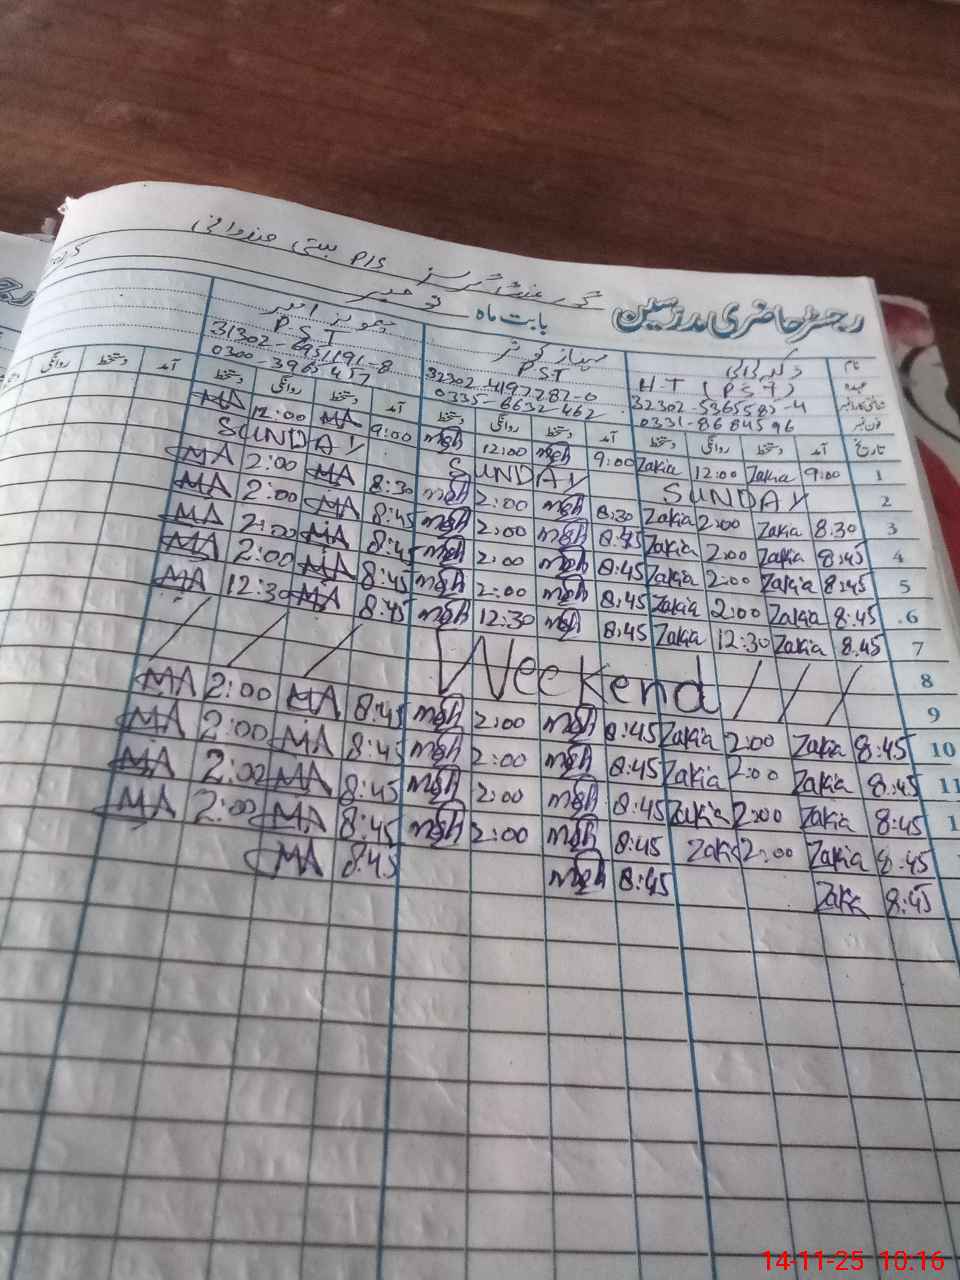 گورنمنٹ گرلز P/S بستی
رجسٹر حاضری مدرسین بابت ماہ نومبر
نام
عہدہ H.T (PST) PST PST
شناختی کارڈ نمبر 32302-5365587-4 32302-4197787-0 31302-6951191-8
فون نمبر 0331-8684596 0335-6632462 0300-3965457
تاریخ آمد دستخط روانگی دستخط آمد دستخط روانگی دستخط آمد دستخط روانگی دستخط آمد دستخط روانگی
1 9:00 Zakia 12:00 Zakia 9:00 mgh 12:00 mgh 9:00 MA 12:00 MA
2 SUNDAY SUNDAY SUNDAY
3 8.30 Zakia 2:00 Zakia 8:30 mgh 2:00 mgh 8:30 MA 2:00 MA
4 8:45 Zakia 2:00 Zakia 8:45 mgh 2:00 mgh 8:45 MA 2:00 MA
5 8:45 Zakia 2:00 Zakia 8:45 mgh 2:00 mgh 8:45 MA 2:00 MA
6 8:45 Zakia 2:00 Zakia 8:45 mgh 2:00 mgh 8:45 MA 2:00 MA
7 8.45 Zakia 12:30 Zakia 8:45 mgh 12:30 mgh 8:45 MA 12:30 MA
8 Weekend
9
10 8:45 Zakia 2:00 Zakia 8:45 mgh 2:00 mgh 8:45 MA 2:00 MA
11 8:45 Zakia 2:00 Zakia 8:45 mgh 2:00 mgh 8:45 MA 2:00 MA
1 8:45 Zakia 2:00 Zakia 8:45 mgh 2:00 mgh 8:45 MA 2:00 MA
8:45 Zakia 2:00 Zakia 8:45 mgh 2:00 mgh 8:45 MA 2:00 MA
8:45 Zakia 8:45 mgh 8:45 MA
14-11-25 10:16